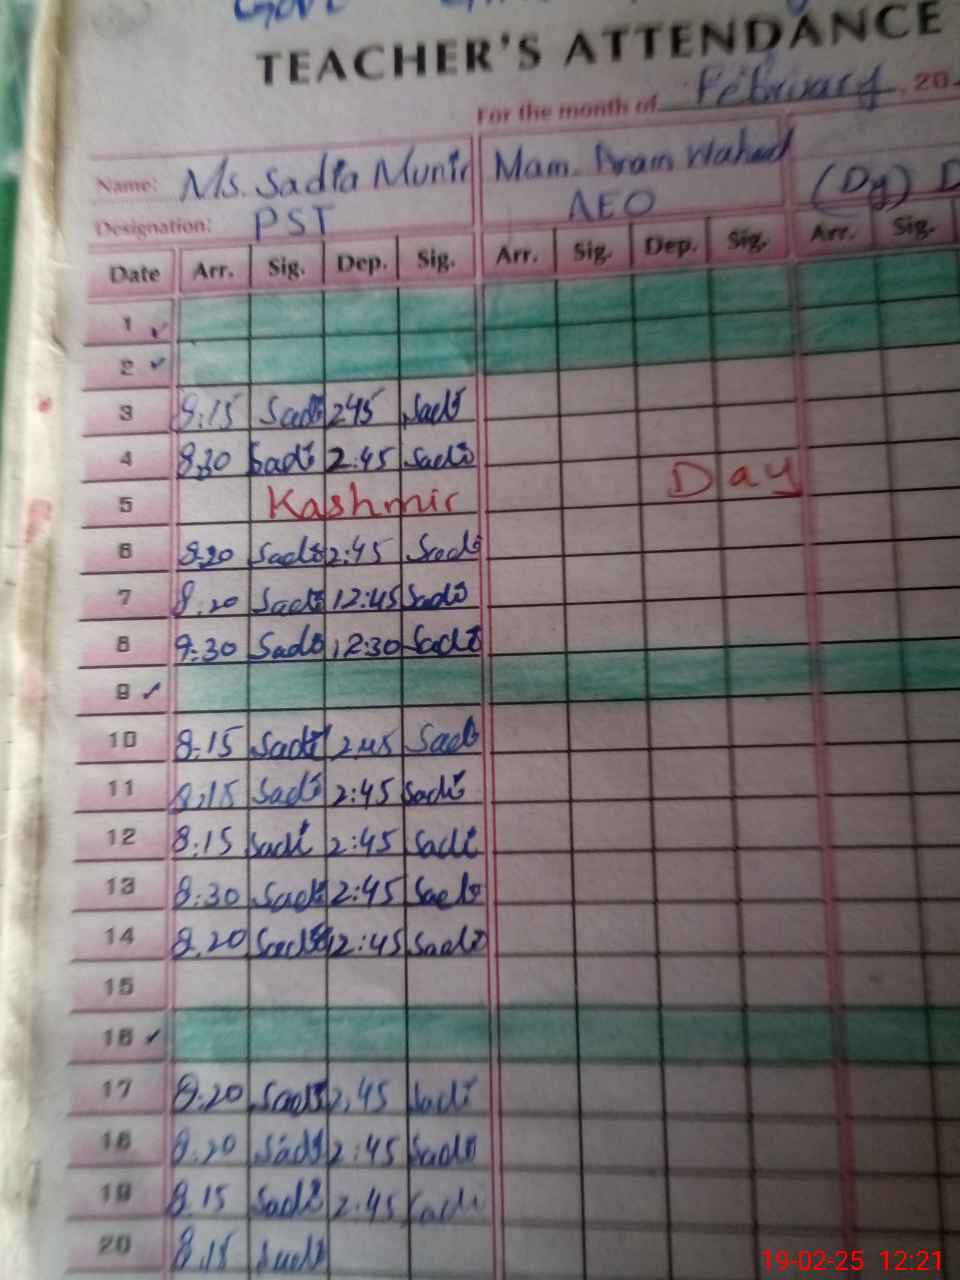 Govt
TEACHER'S ATTENDANCE
For the month of February, 20
Name: Ms. Sadia Munir Mam. Iram Waheed
Designation: PST AEO (Dy) D
Date Arr. Sig. Dep. Sig. Arr. Sig. Dep. Sig. Arr. Sig.
1 ✓
2 ✓
3 8:15 Sadi 245 Sadi
4 8.30 Sadi 2:45 Sadi
5 Kashmir Day
6 8.20 Sadi 2:45 Sadi
7 8.20 Sadi 12:45 Sadi
8 9:30 Sadi 12:30 Sadi
9 ✓
10 8:15 Sadi 2:45 Sadi
11 8:15 Sadi 2:45 Sadi
12 8:15 Sadi 2:45 Sadi
13 8:30 Sadi 2:45 Sadi
14 8.20 Sadi 12:45 Sadi
15
16 ✓
17 8.20 Sadi 2,45 Sadi
18 8.20 Sadi 2:45 Sadi
19 8.15 Sadi 2.45 Sadi
20 8.15 Sadi
19-02-25 12:21